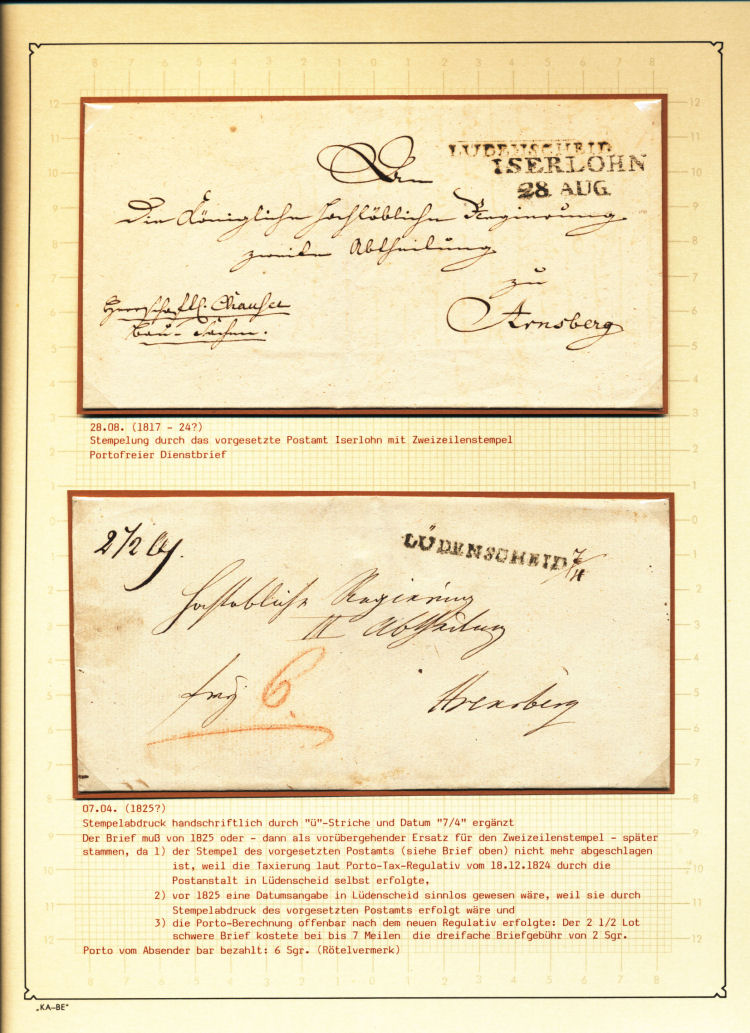 LUDENSCHEID
ISERLOHN
28 AUG.
An
Die Königliche Hochlöbliche Regierung
zweite Abtheilung
zu
Arnsberg
Herrschaftl. Chaussee
Bau-Sachen.
28.08. (1817 - 24?)
Stempelung durch das vorgesetzte Postamt Iserlohn mit Zweizeilenstempel
Portofreier Dienstbrief
2 1/2 Lth.
LÜDENSCHEID 7/4
Hochlöbliche Regierung
II Abtheilung
frey 6
Arensberg
07.04. (1825?)
Stempelabdruck handschriftlich durch "ü"-Striche und Datum "7/4" ergänzt
Der Brief muß von 1825 oder - dann als vorübergehender Ersatz für den Zweizeilenstempel - später
stammen, da 1) der Stempel des vorgesetzten Postamts (siehe Brief oben) nicht mehr abgeschlagen
ist, weil die Taxierung laut Porto-Tax-Regulativ vom 18.12.1824 durch die
Postanstalt in Lüdenscheid selbst erfolgte,
2) vor 1825 eine Datumsangabe in Lüdenscheid sinnlos gewesen wäre, weil sie durch
Stempelabdruck des vorgesetzten Postamts erfolgt wäre und
3) die Porto-Berechnung offenbar nach dem neuen Regulativ erfolgte: Der 2 1/2 Lot
schwere Brief kostete bei bis 7 Meilen die dreifache Briefgebühr von 2 Sgr.
Porto vom Absender bar bezahlt: 6 Sgr. (Rötelvermerk)
„KA-BE"